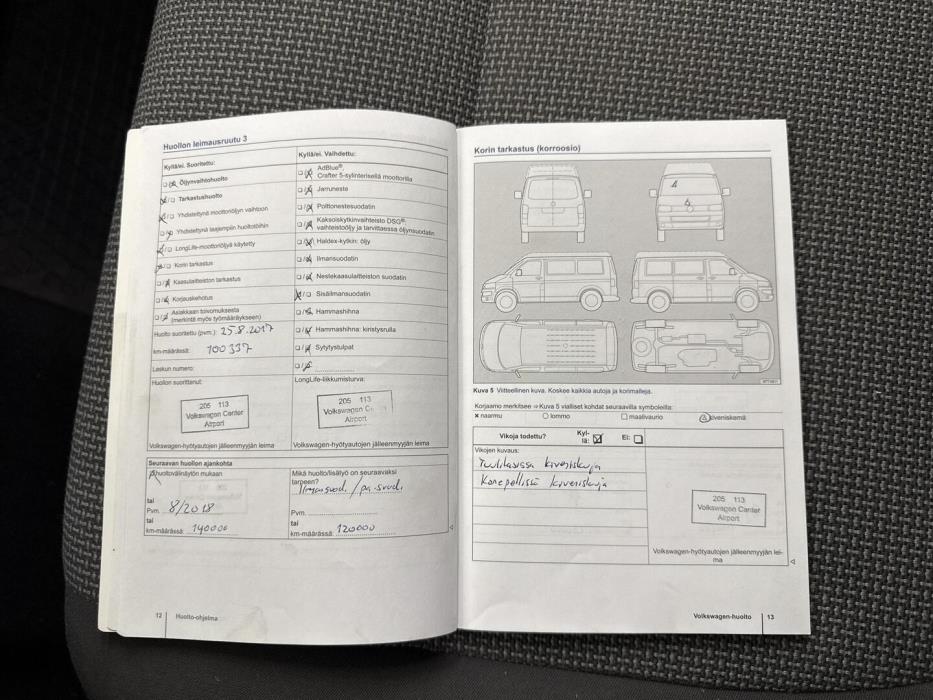 Huollon leimausruutu 3
Kyllä/ei. Suoritettu:
Öljynvaihtohuolto
Tarkastushuolto
Yhdistettynä moottoriöljyn vaihtoon
Yhdistettynä laajempiin huoltotöihin
LongLife-moottoriöljyä käytetty
Korin tarkastus
Kaasulaitteiston tarkastus
Korjauskehotus
Asiakkaan toivomuksesta
(merkintä myös työmääräykseen)
Huolto suoritettu (pvm.): 25.8.2017
km-määrässä: 100337
Laskun numero:
Huollon suorittanut:
205 113
Volkswagen Center
Airport
Volkswagen-hyötyautojen jälleenmyyjän leima
Kyllä/ei. Vaihdettu:
AdBlue®,
Crafter 5-sylinterisellä moottorilla
Jarruneste
Polttonestesuodatin
Kaksoiskytkinvaihteisto DSG®:
vaihteistoöljy ja tarvittaessa öljynsuodatin
Haldex-kytkin: öljy
Ilmansuodatin
Nestekaasulaitteiston suodatin
Sisäilmansuodatin
Hammashihna
Hammashihna: kiristysrulla
Sytytystulpat
LongLife-liikkumisturva:
205 113
Volkswagen Center
Airport
Volkswagen-hyötyautojen jälleenmyyjän leima
Seuraavan huollon ajankohta
huoltovälinäytön mukaan
tai
Pvm. 8/2018
tai
km-määrässä: 140000
Mikä huolto/lisätyö on seuraavaksi
tarpeen?
Ilmansuod. / pa.suod.
Pvm.
tai
km-määrässä: 120000
12 Huolto-ohjelma
Korin tarkastus (korroosio)
Kuva 5 Viitteellinen kuva. Koskee kaikkia autoja ja korimalleja.
Korjaamo merkitsee ⇒ Kuva 5 vialliset kohdat seuraavilla symboleilla:
× naarmu ○ lommo □ maalivaurio △ kiveniskemä
Vikoja todettu? Kyl-
lä: Ei:
Vikojen kuvaus:
Tuulilasissa kiveniskuja
Konepellissä kiveniskuja
205 113
Volkswagen Center
Airport
Volkswagen-hyötyautojen jälleenmyyjän lei-
ma
Volkswagen-huolto 13